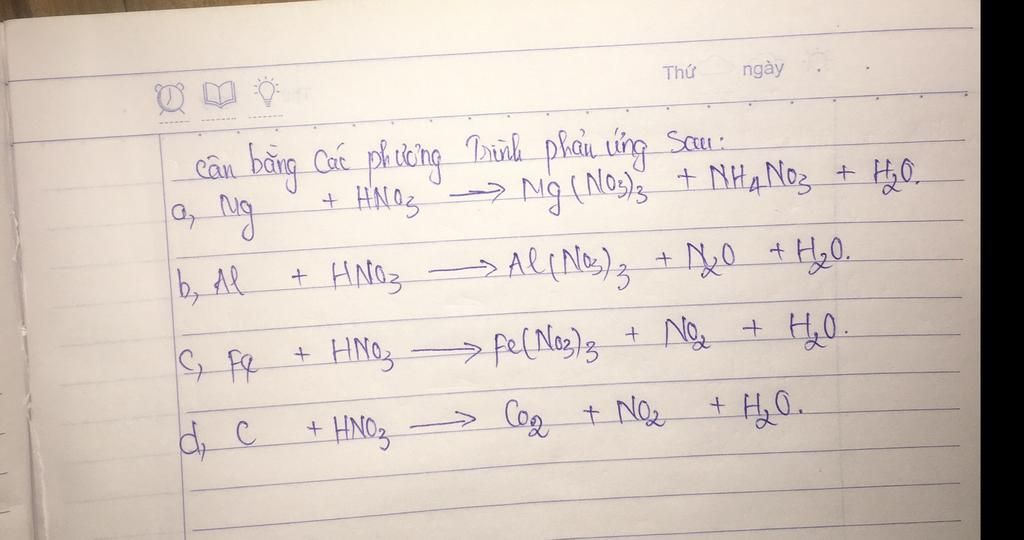 Thứ ngày
Cân bằng Các phương Trình phản ứng Sau:
a, Mg + HNO3 → Mg(NO3)3 + NH4NO3 + H2O.
b, Al + HNO3 → Al(NO3)3 + N2O + H2O.
c, Fe + HNO3 → Fe(NO3)3 + NO2 + H2O.
d, C + HNO3 → CO2 + NO2 + H2O.